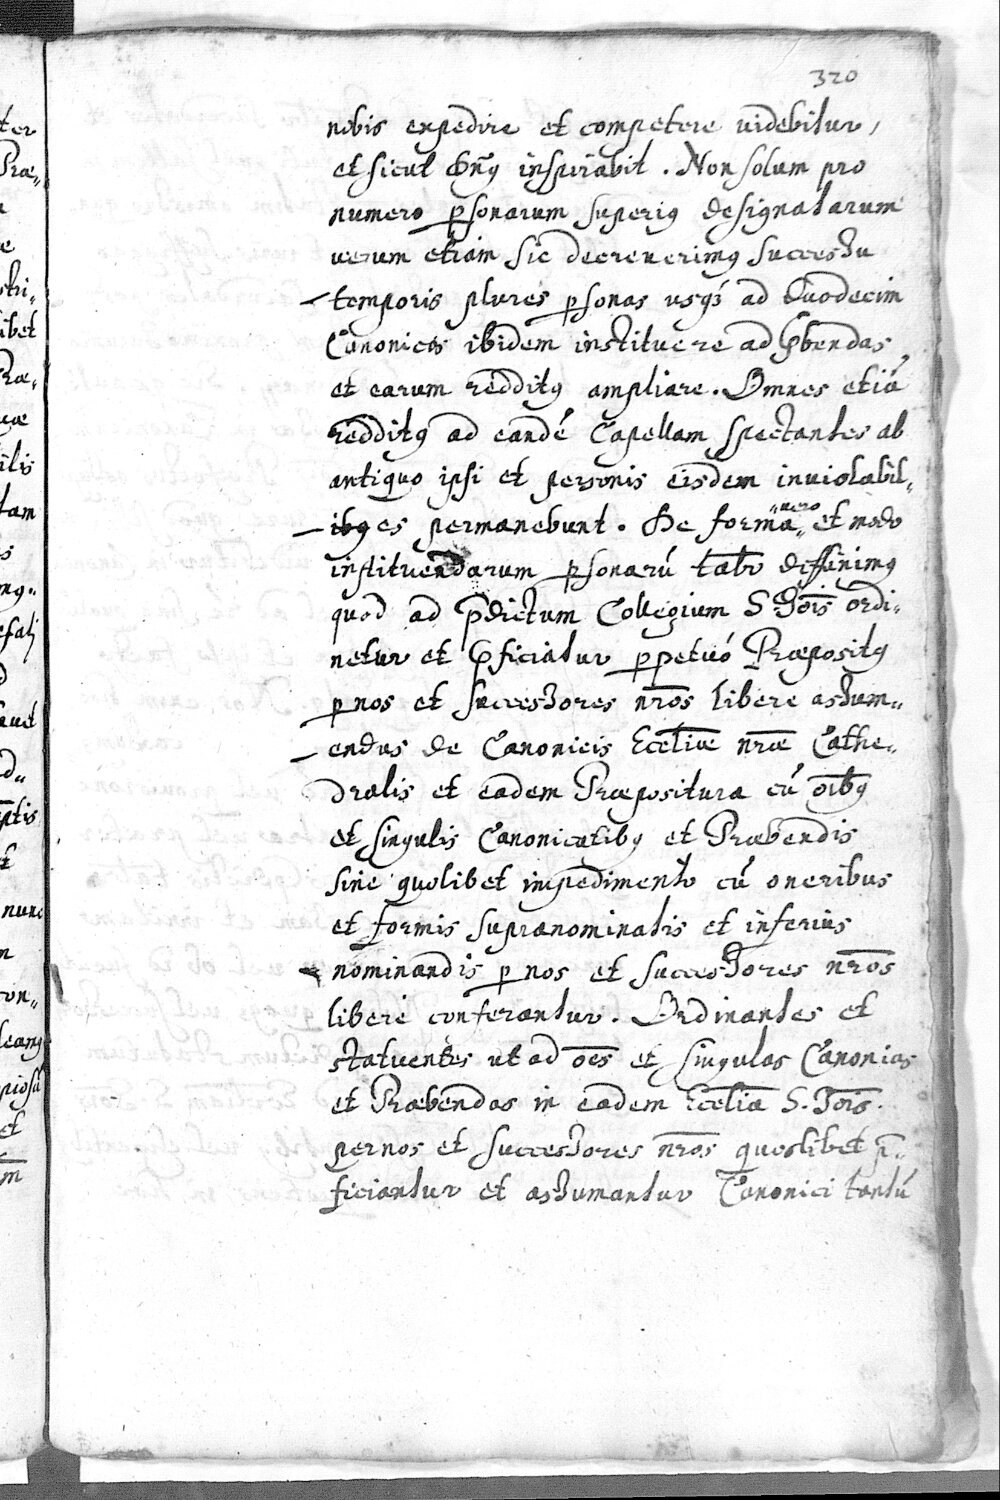 320
nobis expedire et competere uidebitur,
et sicut Dñs inspirabit. Non solum pro
numero p̱sonarum superiꝰ designatarum
uerum etiam sic decreuerimꝰ successu
temporis plures p̱sonas usqꝫ ad Duodecim
Canonicos ibidem instituere ad Pbendas
et earum redditꝰ ampliare. Omnes etiā
redditꝰ ad eandē Capellam spectantes ab
antiquo ipsi et personis eisdem inuiolabil„
es permanebunt. De forma „uero„ et modo
instituendarum p̱sonarū tal̄r diffinimꝰ
quod ad p̄dictum Collegium S. Jōīs ordi„
netur et P̱ficiatur p̱petuó Præpositꝰ
p̱ nos et successores nr̄os libere assum„
endus de Canonicis Eccl̄iæ nr̄æ Cathe„
dralis et eadem Præpositura cū oībꝰ
et singulis Canonicatibꝰ et Præbendis
sine quolibet impedimento cū oneribus
et formis supranominatis et inferius
nominandis p̱ nos et successores nr̄os
libere conferantur. Ordinantes et
statuentes ut ad oēs et singulas Canonias
et Præbendas in eadem Eccl̄ia S. Jōīs.
per nos et successores nr̄os quoslibet p̄„
ficiantur et assumantur Canonici tantū
ter
Præ„
libet
Præ„
ilis
tam
nunc
con„
et